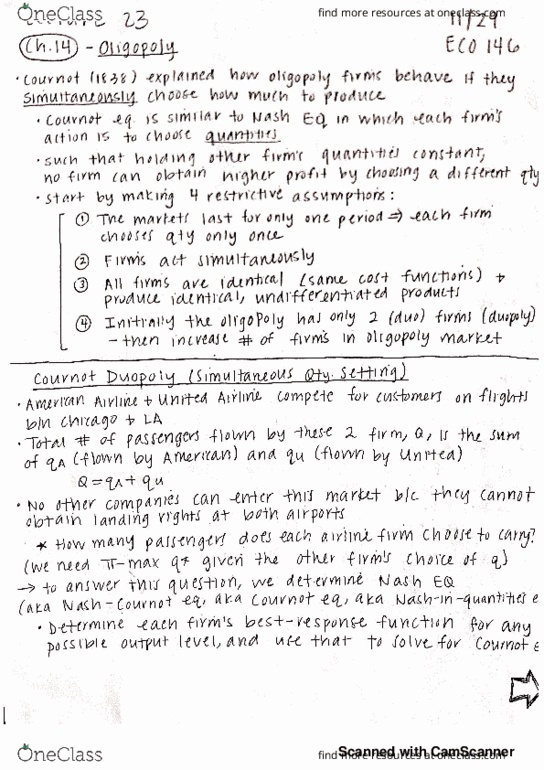 OneClass
find more resources at oneclass.com
23
11/29
Ch.14 - Oligopoly
ECO 146
• Cournot (1838) explained how oligopoly firms behave if they
simultaneously choose how much to produce
• Cournot eq. is similar to Nash EQ in which each firm's
action is to choose quantities
• such that holding other firm's quantities constant,
no firm can obtain higher profit by choosing a different qty
• start by making 4 restrictive assumptions:
① The markets last for only one period ⇒ each firm
chooses qty only once
② Firms act simultaneously
③ All firms are identical (same cost functions) +
produce identical, undifferentiated products
④ Initially the oligopoly has only 2 (duo) firms (duopoly)
- then increase # of firms in oligopoly market
Cournot Duopoly (Simultaneous Qty. Setting)
• American Airline + United Airline compete for customers on flights
b/n Chicago + LA
• Total # of passengers flown by these 2 firm, Q, is the sum
of qA (flown by American) and qu (flown by United)
Q = qA + qu
• No other companies can enter this market b/c they cannot
obtain landing rights at both airports
* How many passengers does each airline firm choose to carry?
(we need π-max q* given the other firm's choice of q)
→ to answer this question, we determine Nash EQ
(aka Nash-Cournot eq, aka Cournot eq, aka Nash-in-quantities e
• Determine each firm's best-response function for any
possible output level, and use that to solve for Cournot e
OneClass
find more resources at oneclass.com
Scanned with CamScanner